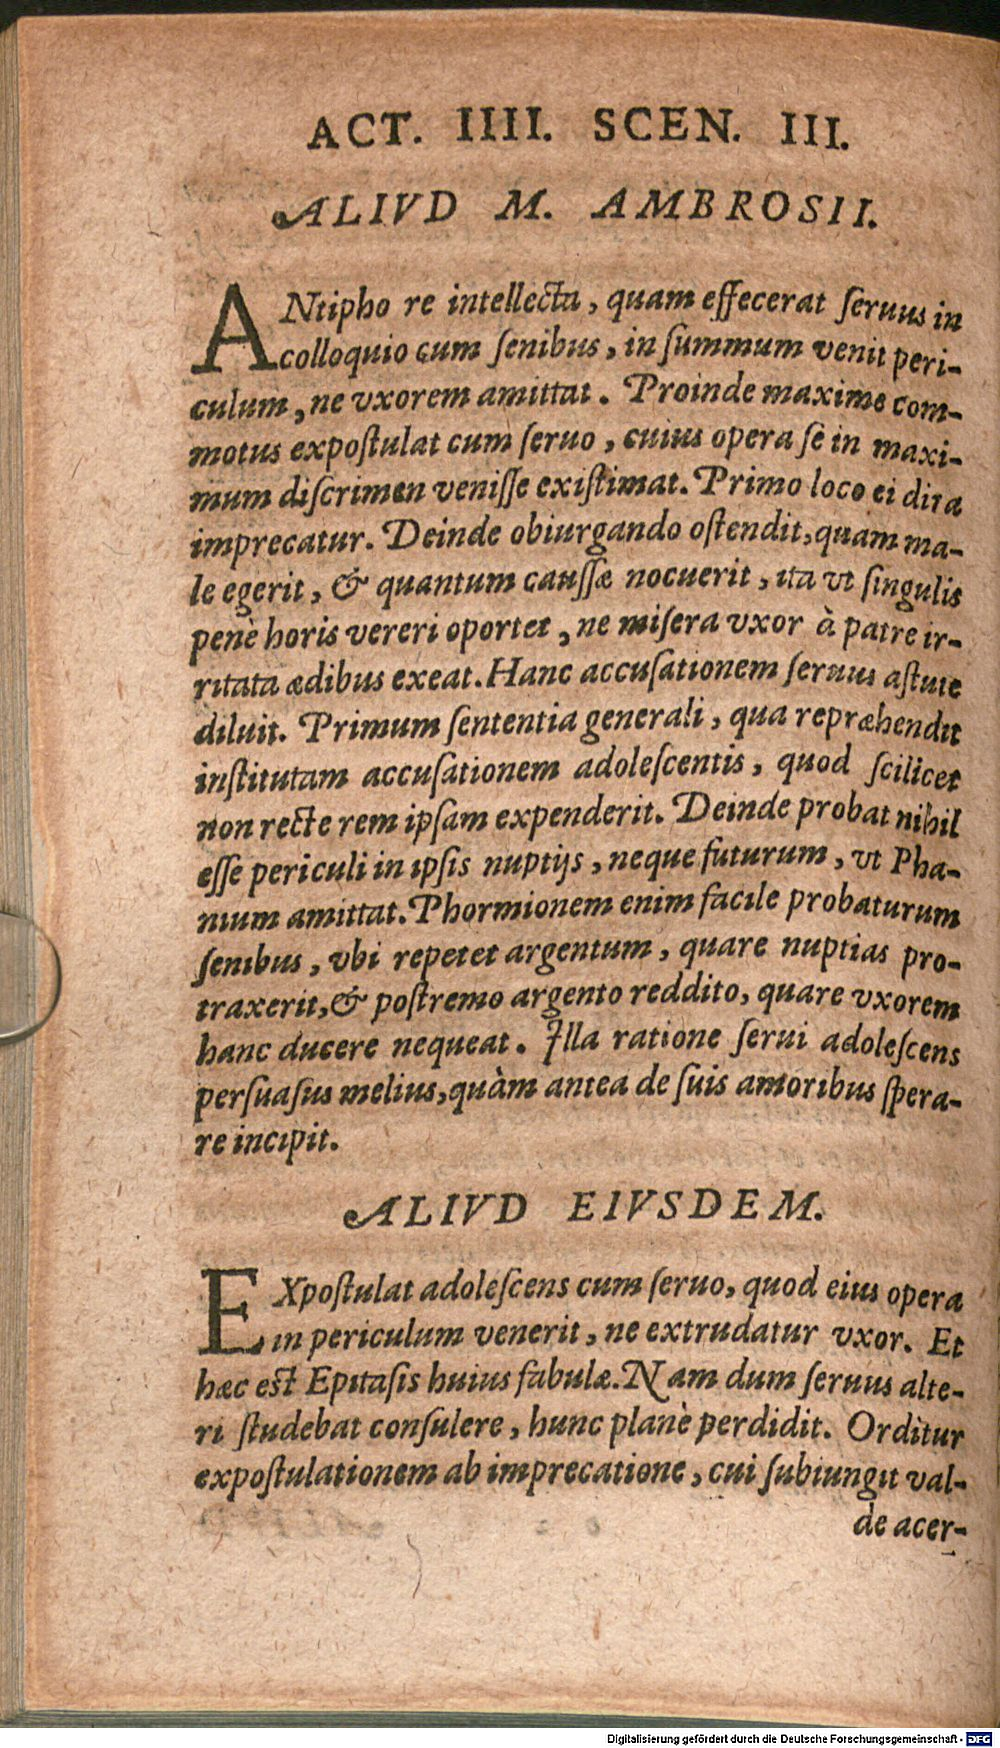 ACT. IIII. SCEN. III.
ALIVD M. AMBROSII.
ANtipho re intellecta, quam effecerat ſeruus in
colloquio cum ſenibus, in ſummum venit peri-
culum, ne vxorem amittat. Proinde maxime com-
motus expoſtulat cum ſeruo, cuius opera ſe in maxi-
mum diſcrimen veniſſe exiſtimat. Primo loco ei dira
imprecatur. Deinde obiurgando oſtendit, quam ma-
le egerit, & quantum cauſſæ nocuerit, ita vt ſingulis
penè horis vereri oportet, ne miſera vxor à patre ir-
ritata ædibus exeat. Hanc accuſationem ſeruus aſtute
diluit. Primum ſententia generali, qua repræhendit
inſtitutam accuſationem adoleſcentis, quod ſcilicet
non recte rem ipſam expenderit. Deinde probat nihil
eſſe periculi in ipſis nuptijs, neque futurum, vt Pha-
nium amittat. Phormionem enim facile probaturum
ſenibus, vbi repetet argentum, quare nuptias pro-
traxerit, & poſtremo argento reddito, quare vxorem
hanc ducere nequeat. Illa ratione ſerui adoleſcens
perſuaſus melius, quàm antea de ſuis amoribus ſpera-
re incipit.
ALIVD EIVSDEM.
EXpoſtulat adoleſcens cum ſeruo, quod eius opera
in periculum venerit, ne extrudatur vxor. Et
hæc eſt Epitaſis huius fabulæ. Nam dum ſeruus alte-
ri ſtudebat conſulere, hunc planè perdidit. Orditur
expoſtulationem ab imprecatione, cui ſubiungit val-
de acer-
Digitalisierung gefördert durch die Deutsche Forschungsgemeinschaft - DFG